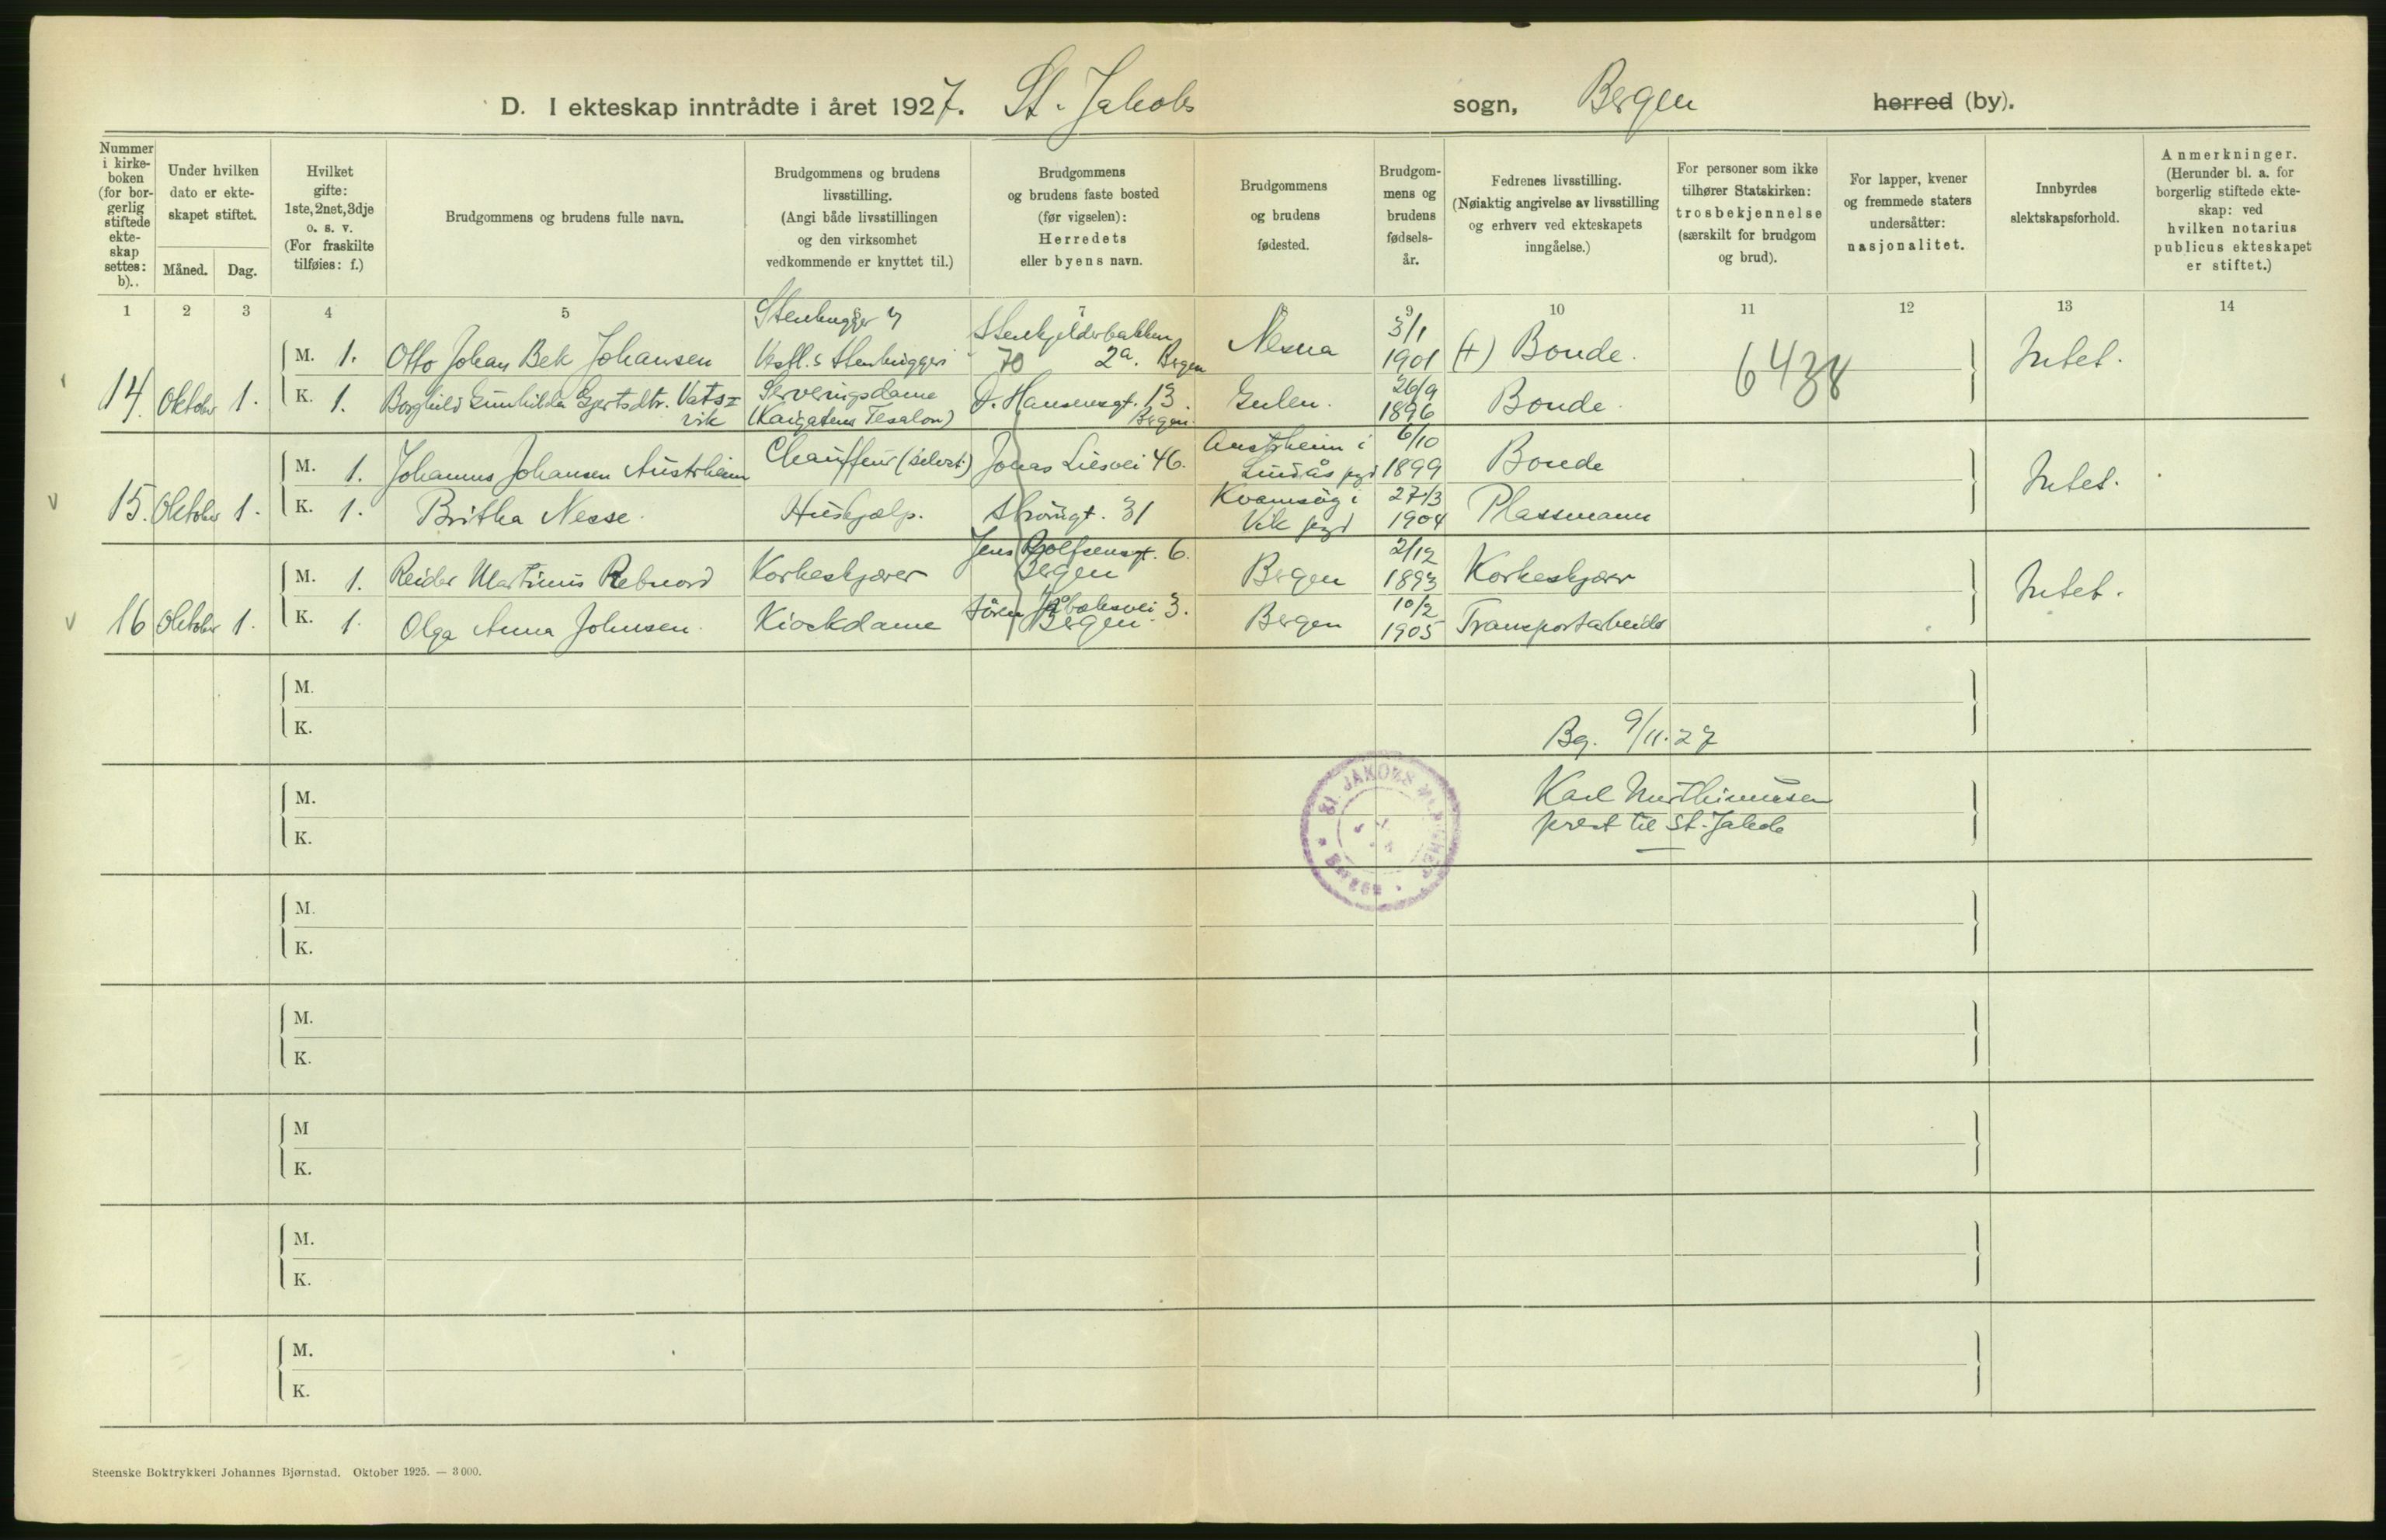 D. I ekteskap inntrådte i året 1927. St. Jakobs sogn, Bergen herred (by).
Nummer i kirke-boken (for bor-gerlig stiftede ekte-skap settes: b)..
Under hvilken dato er ekte-skapet stiftet.
Måned. Dag.
Hvilket gifte: 1ste, 2net, 3dje o. s. v. (For fraskilte tilføies: f.)
Brudgommens og brudens fulle navn.
Brudgommens og brudens livsstilling. (Angi både livsstillingen og den virksomhet vedkommende er knyttet til.)
Brudgommens og brudens faste bosted (før vigselen): Herredets eller byens navn.
Brudgommens og brudens fødested.
Brudgom-mens og brudens fødsels-år.
Fedrenes livsstilling. (Nøiaktig angivelse av livsstilling og erhverv ved ekteskapets inngåelse.)
For personer som ikke tilhører Statskirken: trosbekjennelse (særskilt for brudgom og brud).
For lapper, kvener og fremmede staters undersåtter: nasjonalitet.
Innbyrdes slektskapsforhold.
Anmerkninger. (Herunder bl. a. for borgerlig stiftede ekte-skap: ved hvilken notarius publicus ekteskapet er stiftet.)
1 2 3 4 5 6 7 8 9 10 11 12 13 14
14. Oktober 1.
M. 1. Otto Johan Bek Johansen Stenhugger Vestl.s Stenhuggeri Stenkjelderbakken 2a. Bergen Nesna 3/1 1901 (+) Bonde. 6438 Intet.
K. 1. Borghild Gunhilda Gjertsdtr. Vats=vik Serveringsdame (Kaigatens Tesalon) D. Hansensgt. 13 Bergen. Gulen. 26/9 1896 Bonde.
15. Oktober 1.
M. 1. Johannes Johansen Austrheim Chauffeur (selvst.) Jonas Liesvei 46. Austrheim i Lindås pgd 6/10 1899 Bonde Intet.
K. 1. Britha Nesse. Hushjælp. 31 Kvamsøy i Vik pgd 27/3 1904 Plassmann
16 Oktober 1.
M. 1. Reidar Martinus Rebnord Korkeskjærer Jens Rolfsensgt. 6. Bergen Bergen 2/12 1893 Korkeskjærer Intet.
K. 1. Olga Anna Johnsen. Kioskdame Sören Jaabæksvei 3. Bergen. Bergen 10/2 1905 Transportarbeider
M.
K.
Bg. 9/11.27
M.
K.
Karl
prest til St. Jakob
ST. JAKOBS BERGEN
M.
K.
M.
K.
M
K.
M.
K.
M.
K.
Steenske Boktrykkeri Johannes Bjørnstad. Oktober 1925. — 3000.